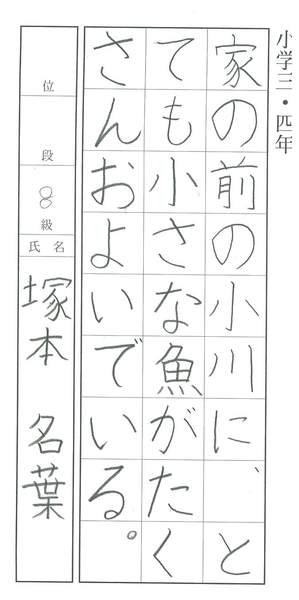 小学三・四年
家の前の小川に、と
ても小さな魚がたく
さんおよいでいる。
位
段
8級
氏名
塚本 名葉